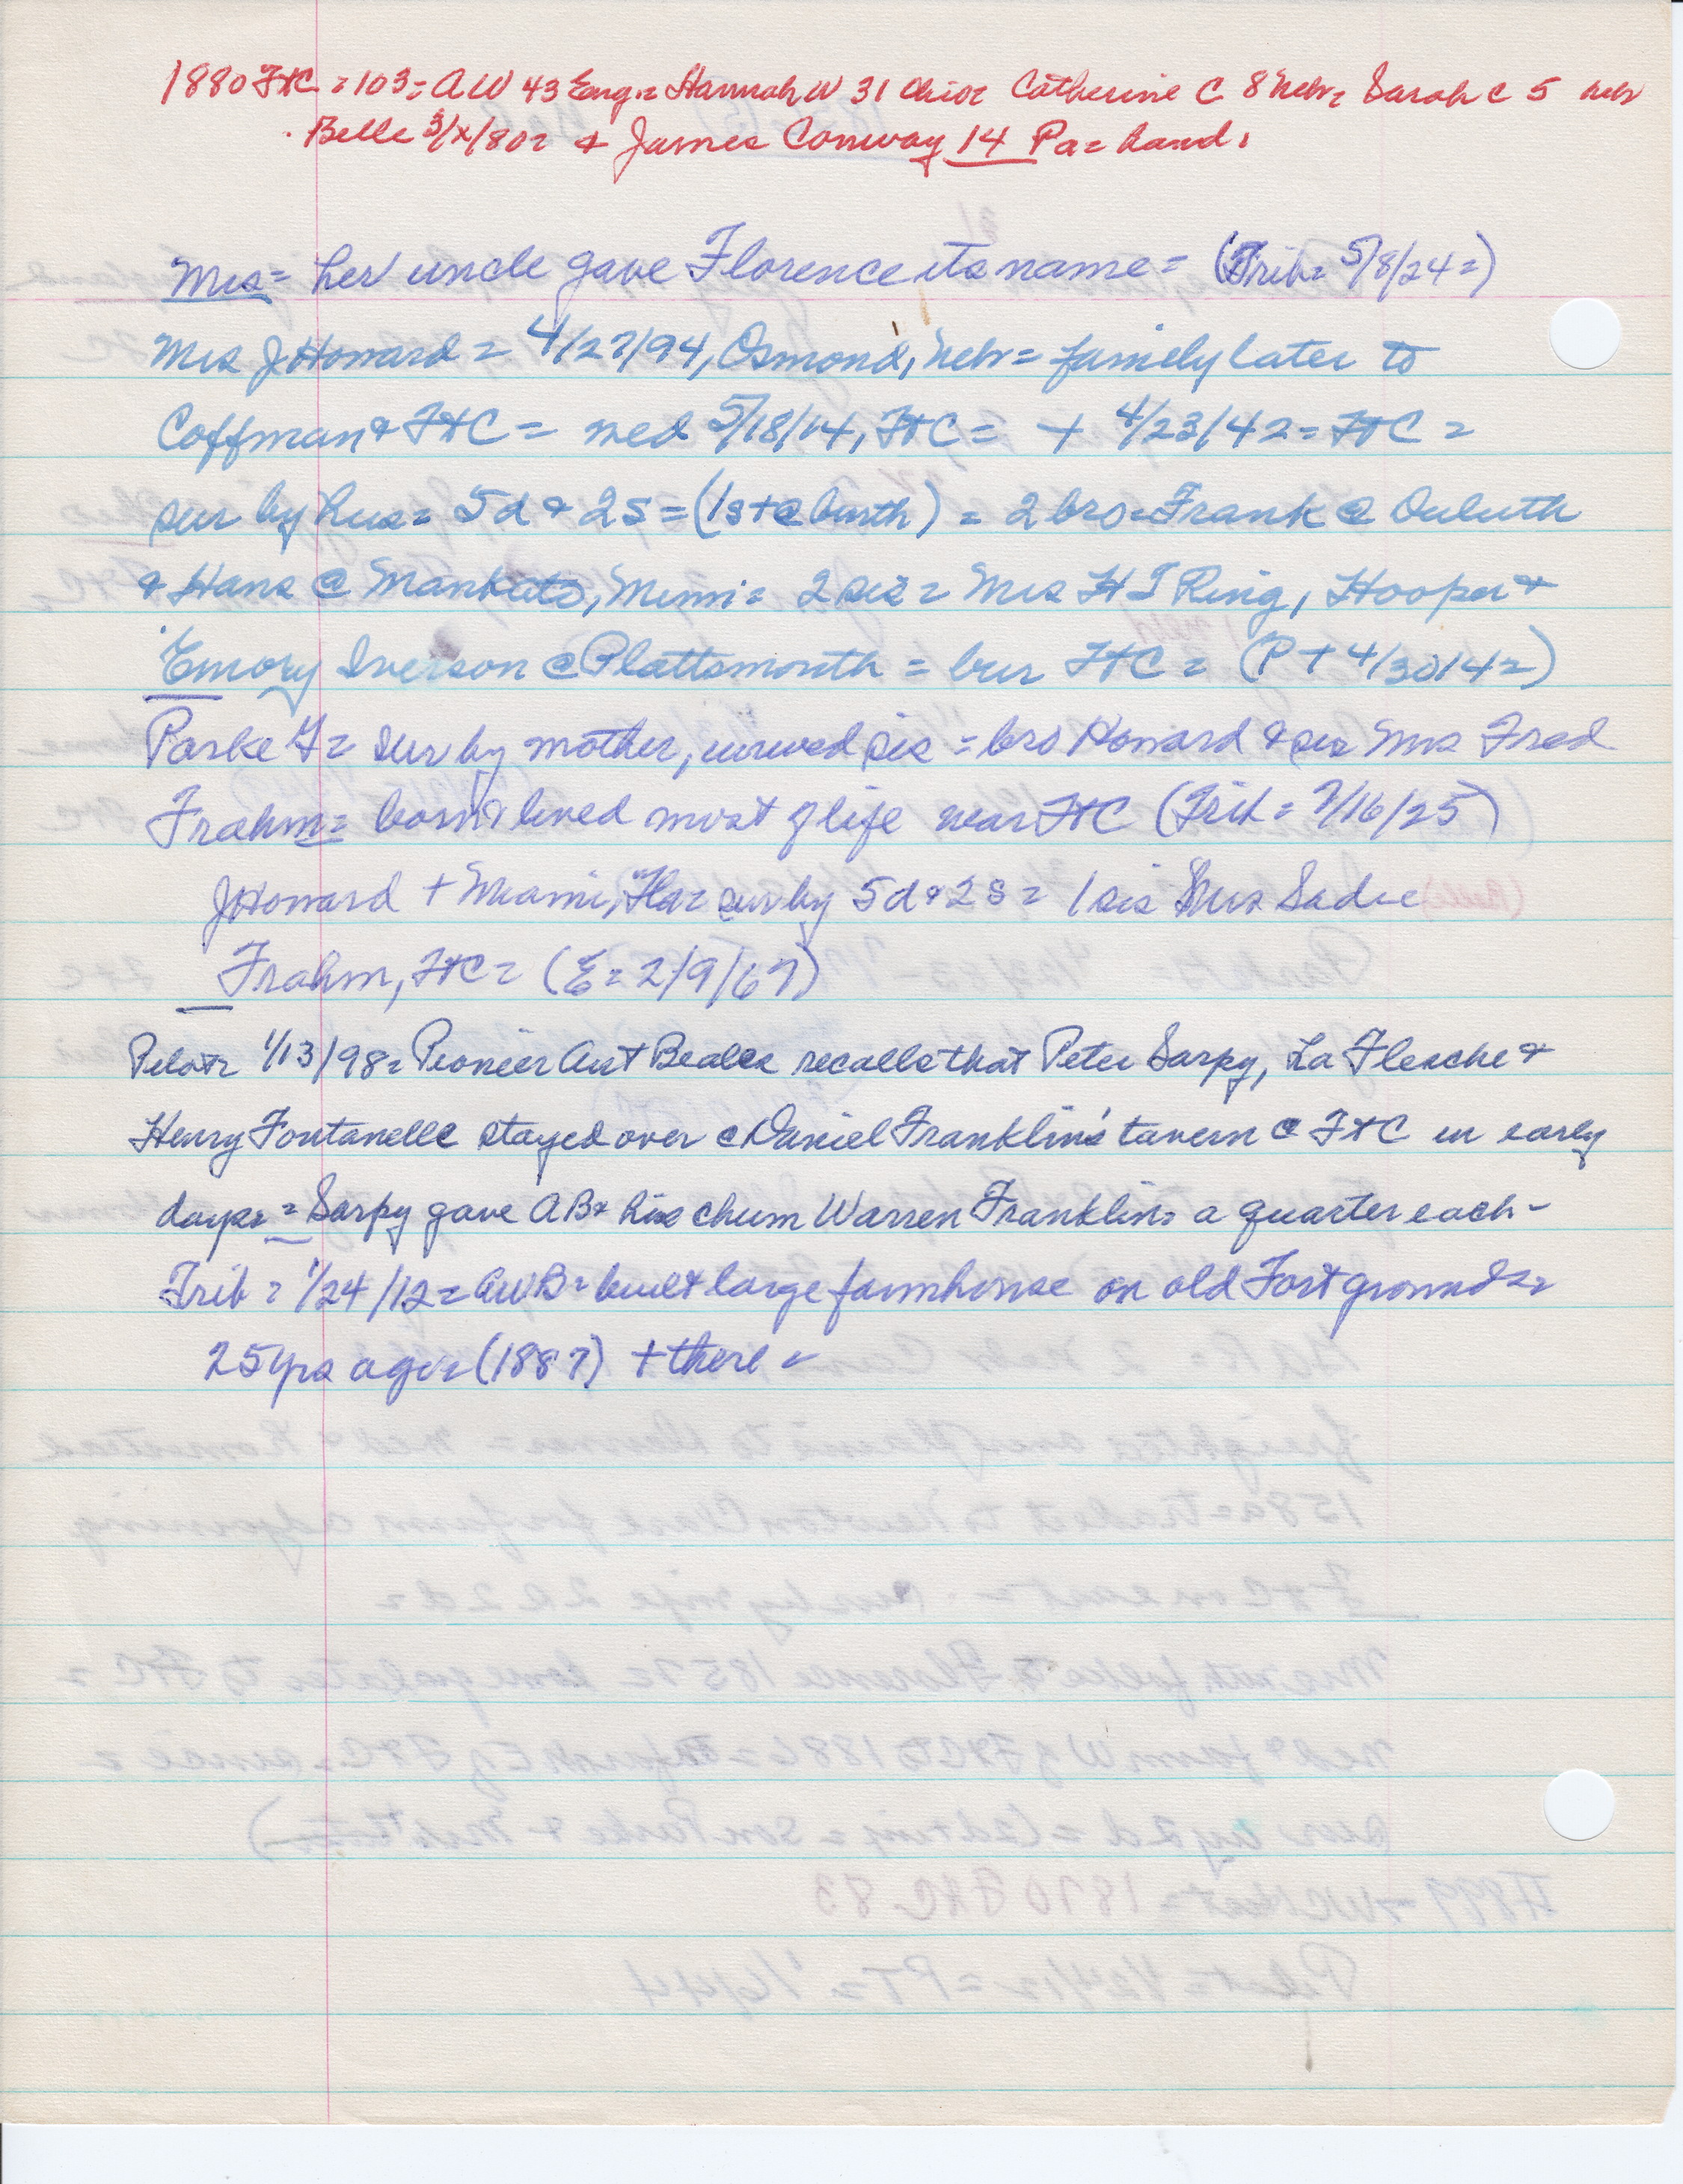 1880 FtC = 103 = AW 43 Eng = Hannah W 31 Ohio = Catherine C 8 Nebr = Sarah C 5 nebr
Belle 3/x/80 = & James Conway 14 Pa = hand.
Mrs = her uncle gave Florence its name = (Trib = 5/8/24 =)
Mrs J Howard = 4/27/94, Osmond, Nebr = family later to
Coffman & FtC = wed 5/18/14, FtC = + 4/23/42 = FtC =
sur by hus = 5d & 2s = (1s + @ birth) = 2 bro = Frank @ Duluth
& Hans @ Mankato, Minn = 2 sis = Mrs H T Ring, Hooper &
Emory Iverson @ Plattsmouth = bur FtC = (P + 4/30/42)
Parke = sur by mother, unwed sis = bro Howard & sis Mrs Fred
Frahm = born & lived most of life near FtC (Trib = 7/16/25)
J Howard + Miami, Fla = sur by 5d & 2s = 1 sis Mrs Sadie
Frahm, FtC = (E = 2/9/67)
Pilot = 1/13/98 = Pioneer Art Beales recalls that Peter Sarpy, La Flesche &
Henry Fontanelle stayed over @ Daniel Franklin's tavern @ FtC in early
days = Sarpy gave AB & his chum Warren Franklin = a quarter each -
Trib = 1/24/12 = AWB = built large farmhouse on old Fort grounds =
25 yrs ago = (1887) + there =